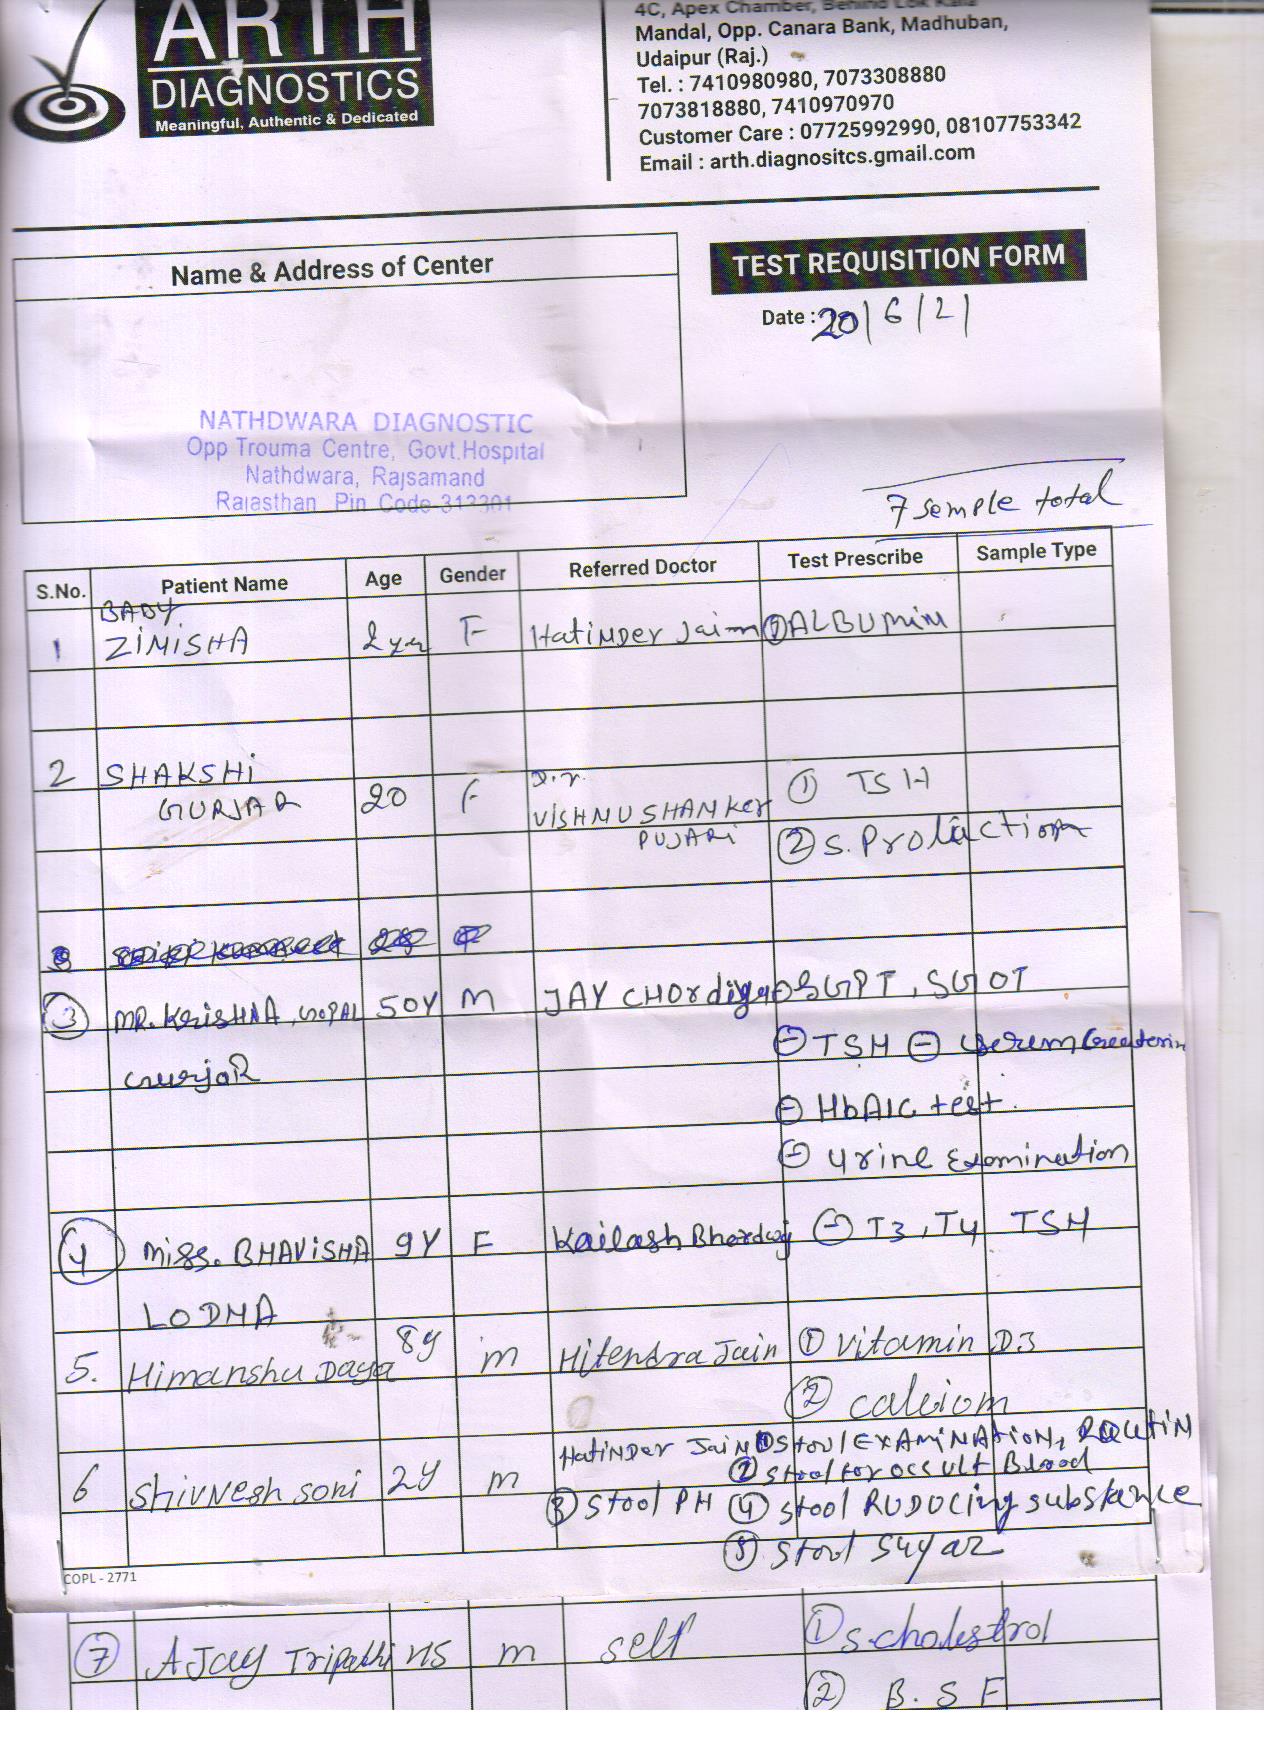 ARTH
DIAGNOSTICS
Meaningful, Authentic & Dedicated
4C, Apex Chamber, Behind Lok Kala
Mandal, Opp. Canara Bank, Madhuban,
Udaipur (Raj.)
Tel. : 7410980980, 7073308880
7073818880, 7410970970
Customer Care : 07725992990, 08107753342
Email : arth.diagnositcs.gmail.com
Name & Address of Center
TEST REQUISITION FORM
Date : 20/6/21
NATHDWARA DIAGNOSTIC
Opp Trouma Centre, Govt.Hospital
Nathdwara, Rajsamand
Rajasthan Pin Code 313301
7 semple total
S.No. Patient Name Age Gender Referred Doctor Test Prescribe Sample Type
BABY
1 ZINISHA 2 yr F HatiNDer Jain ① ALBUMIN
2 SHAKSHI GURJAR 20 F D.r. VISHNUSHANKer PUJARi ① TSH
② S. Prolaction
3 MR. KRISHNA, GOPAL 50Y M JAY CHORdiya SGPT, SGOT
gurjaR TSH serum Createrin
HbA1C test.
Urine Examination
4 Miss. BHAVISHA 9Y F Kailash Bhardwaj T3, T4 TSH
LODHA
5. Himanshu Daya 8y m Hitendra Jain ① Vitamin D3
② calciom
6 Shivnesh soni 2y m HatiNDer Jain ① Stool EXAMINATION, ROUTIN
② Stool for OCCULT Blood
③ Stool PH ④ Stool RUDUCing substance
⑤ Stool Sugar
COPL - 2771
7 AJay Tripathi m self ① S.cholestrol
② B.S F